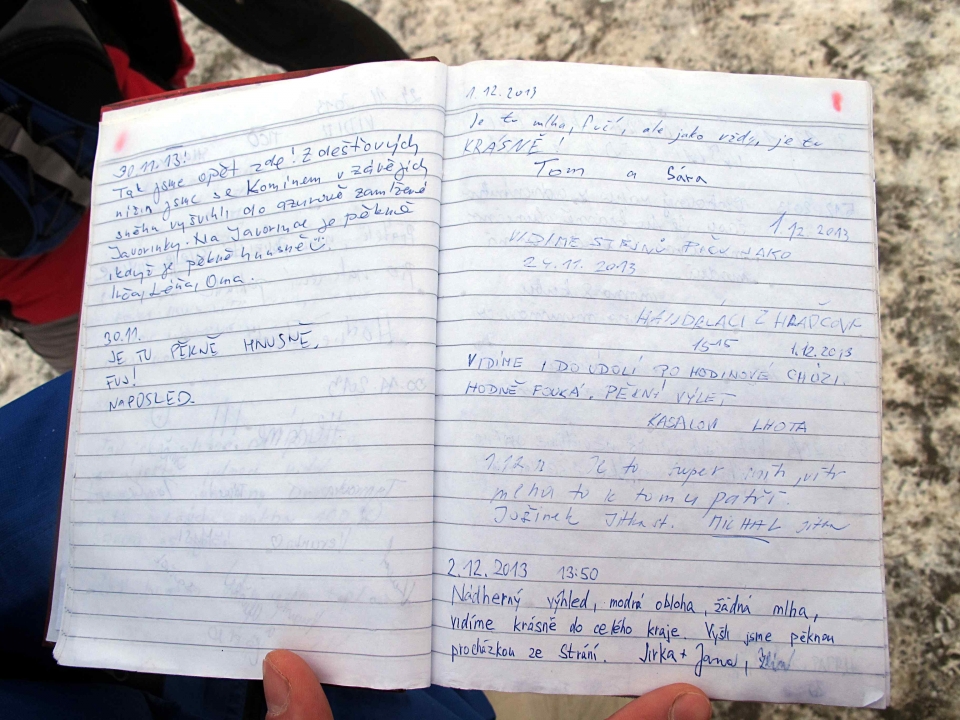 30.11.13!
Tak jsme opět zde! Z deštových
nížin jsme se Komínem v závějích
sněhu vyšvihli do azurově zamlžené
Javorinky. Na Javorince je pěkně
ikdyž je pěkně hnusně
Léňa, Oma.
30.11.
JE TU PĚKNĚ HNUSNĚ,
FUJ!
NAPOSLED.
1.12.2013
Je tu mlha, fučí, ale jako vždy, je tu
KRÁSNĚ!
Tom a Sára
1.12.2013
VIDÍME STEJNÝ JAKO
24.11.2013
HANDELÁCI Z
15:15 1.12.2013
VIDÍME I DO ÚDOLÍ PO HODINOVÉ CHŮZI.
HODNĚ FOUKÁ. PĚKNÝ VÝLET
LHOTA
1.12. Je to super vítr
mlha to k tomu patří.
Jožinek Jitka st. MICHAL Jitka
2.12.2013 13:50
Nádherný výhled, modrá obloha, žádná mlha,
vidíme krásně do celého kraje. Vyšli jsme pěknou
procházkou ze Strání. Jirka + Jana,